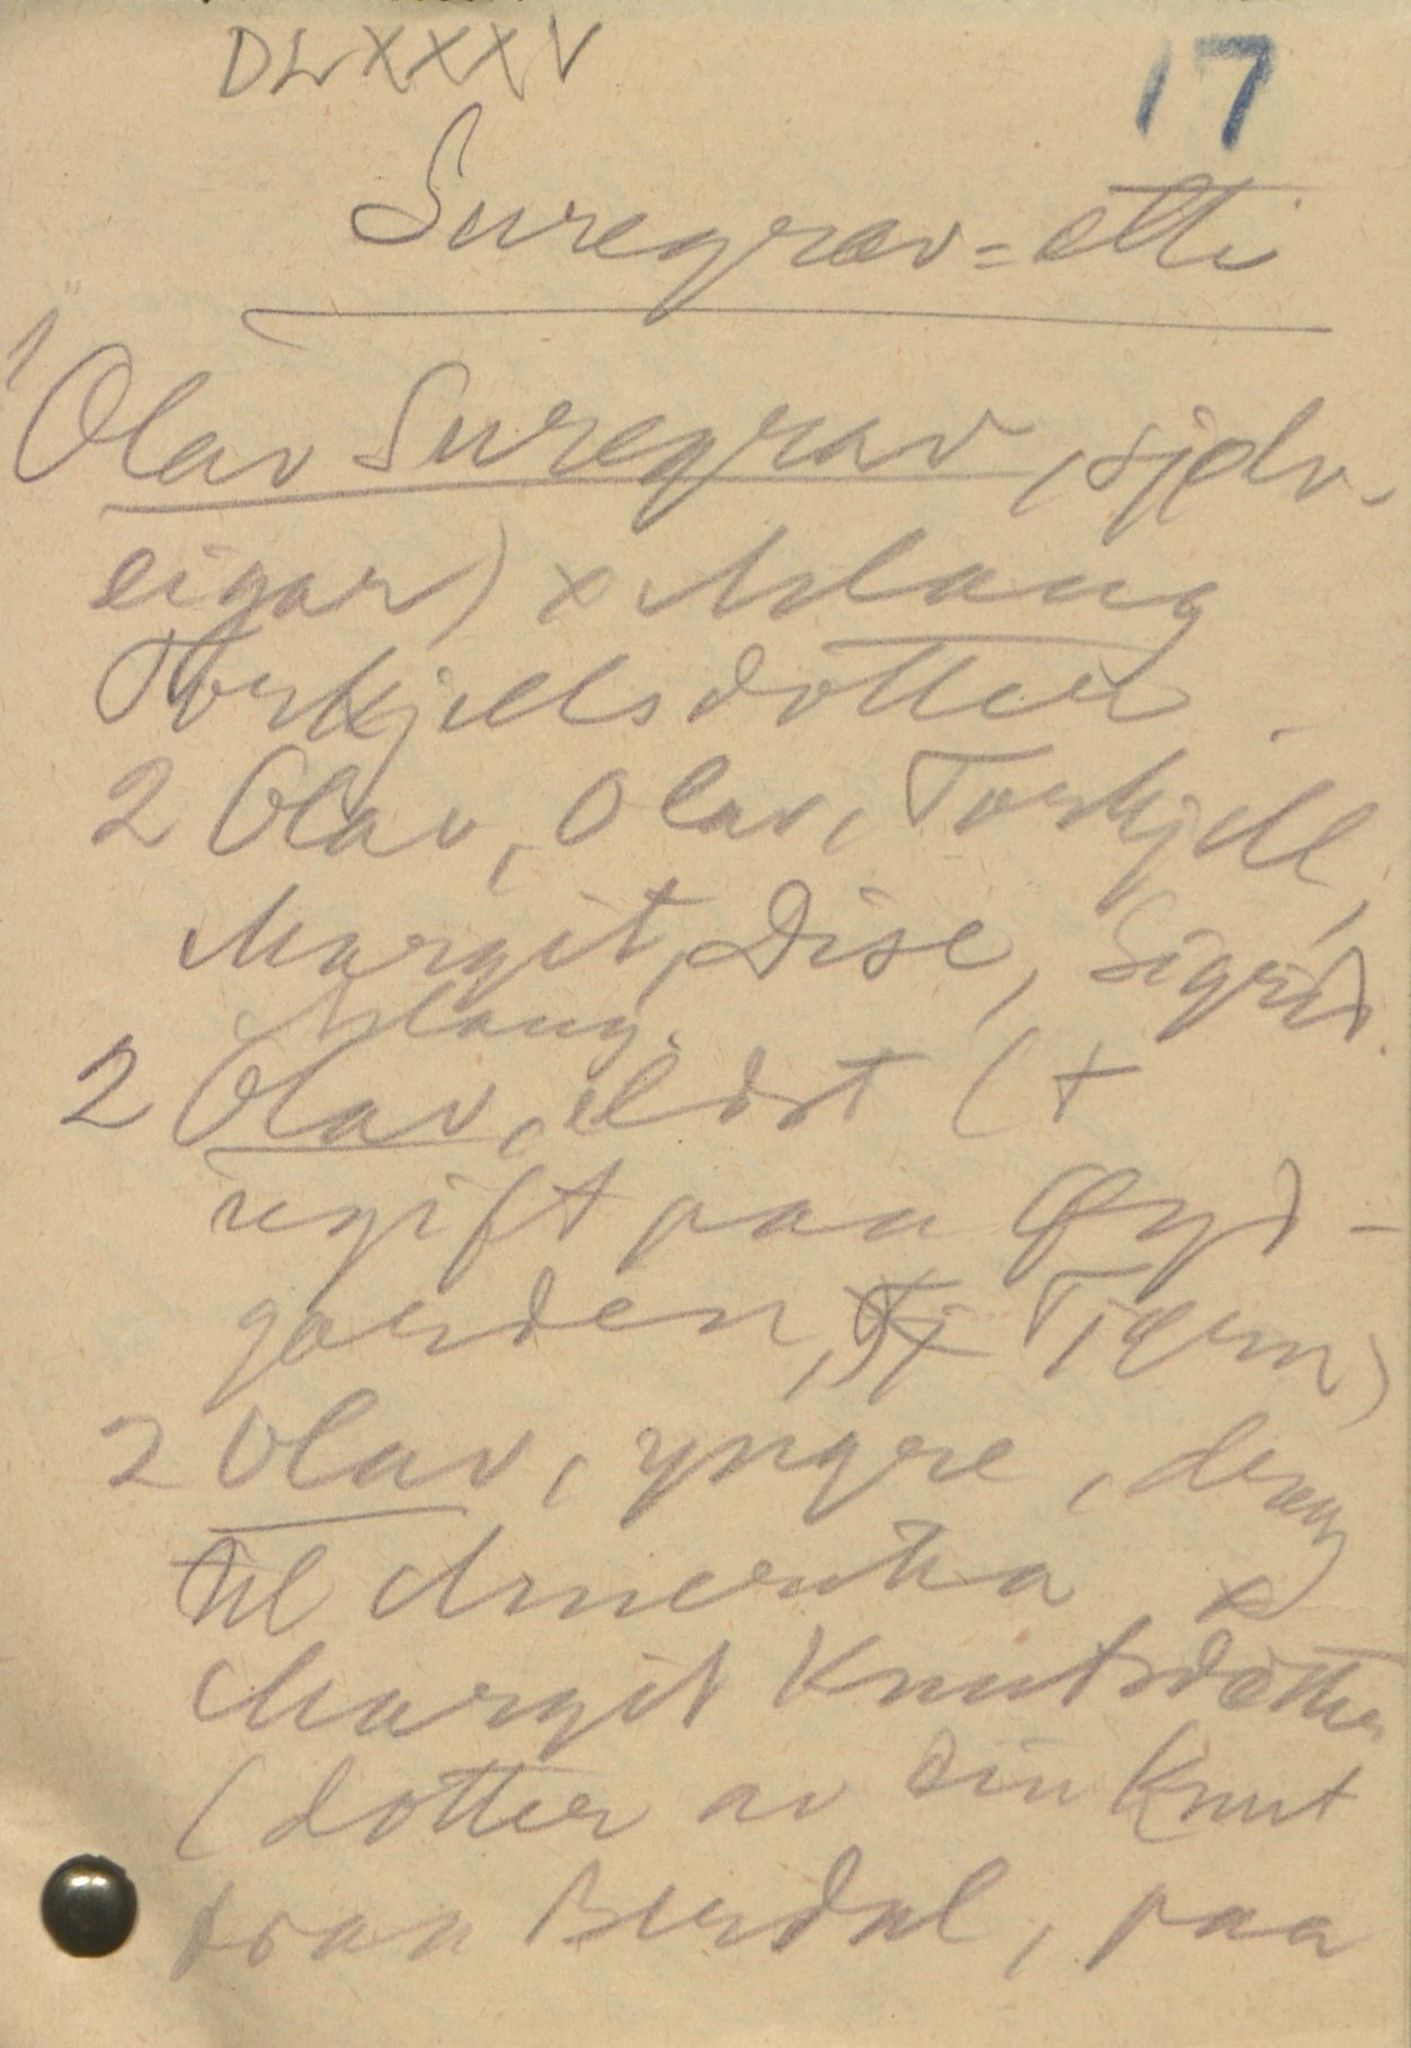 DLXXXV 17
Suregrav=ætti
1 Olav Suregrav, sjølv-
eigar) x Aslaug
Torkjellsdotter
2 Olav, Olav, Torkjell,
Margit, Dise, Sigrid.
Aslaug.
2 Olav, eldst (+
ugift paa Øyd-
garden, Tj Tjørn)
2 Olav, yngre,
til Amerika x
Margit Knutsdotter
(dotter av ein Knut
fraa Berdal, paa